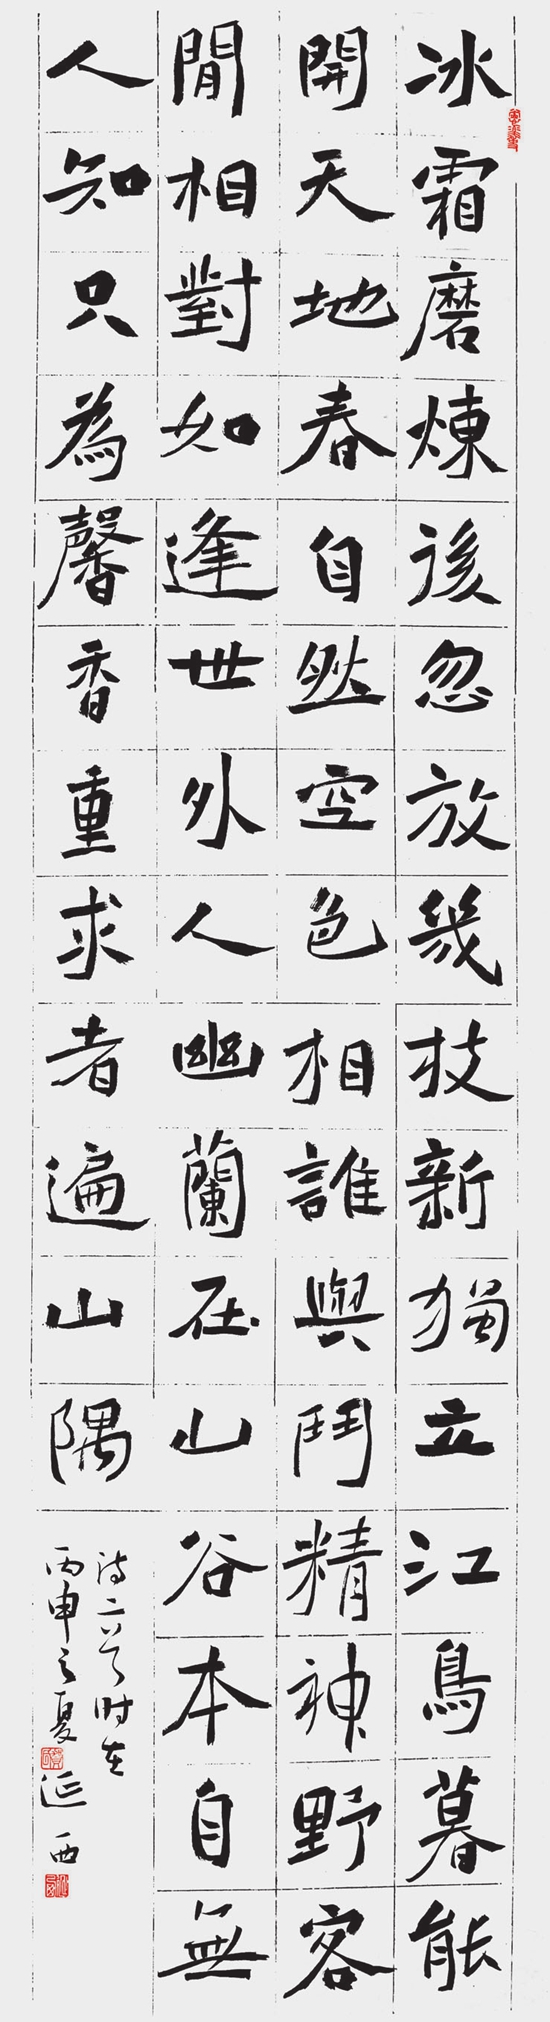 冰霜磨煉後忽放幾枝新獨立江鳥暮能
開天地春自然空色相誰與鬥精神野客
閒相對如逢世外人幽蘭在山谷本自無
人知只為馨香重求者遍山隅
诗二首时在
丙申之夏
延西